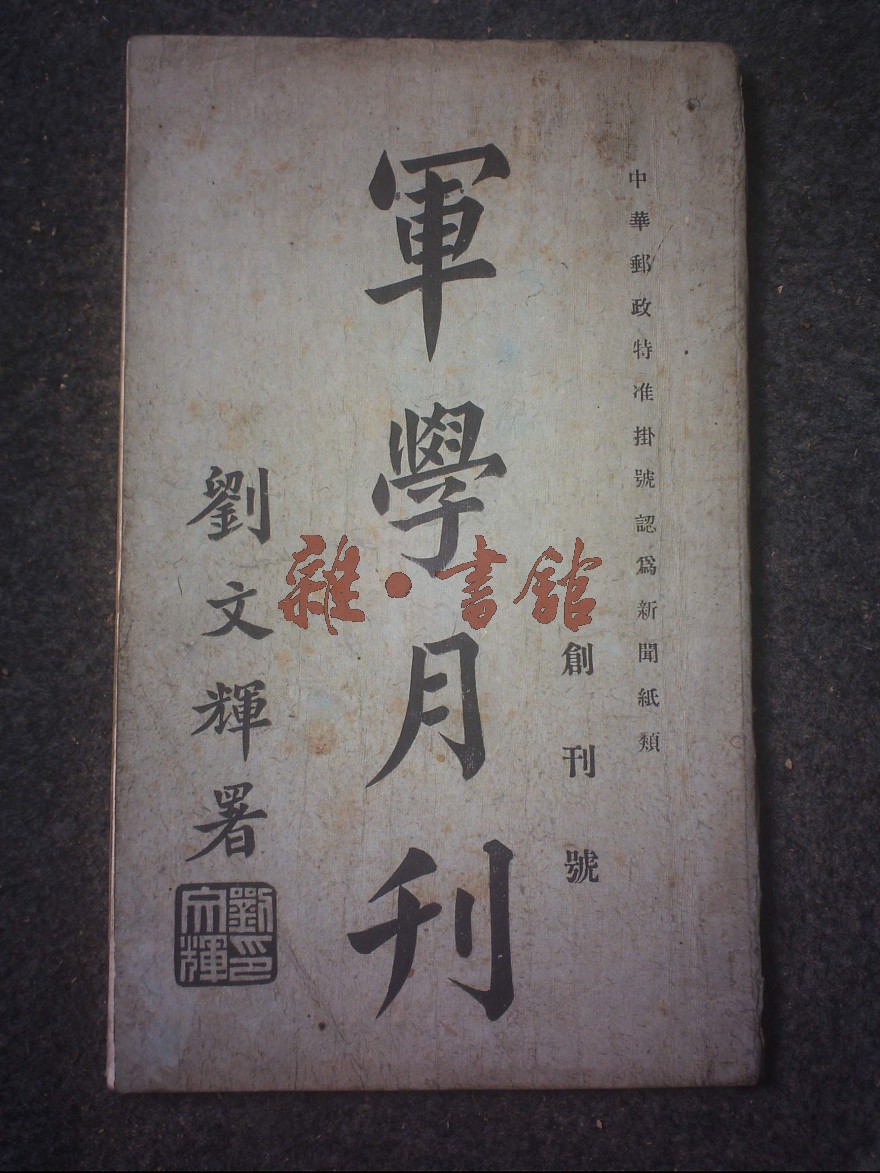 中華郵政特准掛號認爲新聞紙類
創刊號
軍學月刊
劉文輝署
劉印文輝
雜·書館